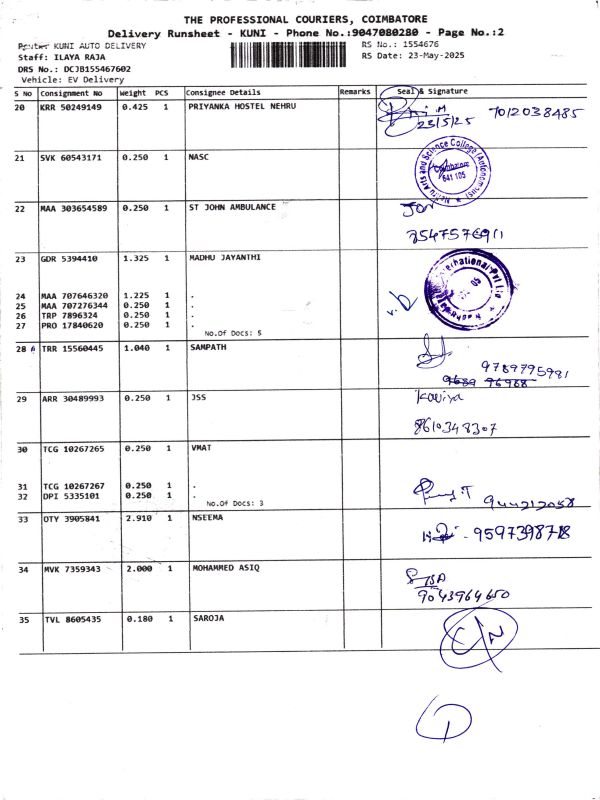 THE PROFESSIONAL COURIERS, COIMBATORE
Delivery Runsheet - KUNI - Phone No.:9047080280 - Page No.:2
Router KUNI AUTO DELIVERY
RS No.: 1554676
Staff: ILAYA RAJA
RS Date: 23-May-2025
DRS No.: DCJB155467602
Vehicle: EV Delivery
S No Consignment No Weight PCS Consignee Details Remarks Seal & Signature
20 KRR 50249149 0.425 1 PRIYANKA HOSTEL NEHRU
23/5/25 7012038485
21 SVK 60543171 0.250 1 NASC
Nehru Arts and Science College (Autonomous)
Coimbatore
641 105
22 MAA 303654589 0.250 1 ST JOHN AMBULANCE
Jon
23 GDR 5394410 1.325 1 MADHU JAYANTHI
International Pvt Ltd
24 MAA 707646320 1.225 1 .
25 MAA 707276344 0.250 1 .
26 TRP 7896324 0.250 1 .
27 PRO 17840620 0.250 1 .
No.Of Docs: 5
28 TRR 15560445 1.040 1 SAMPATH
9789795981
29 ARR 30489993 0.250 1 JSS
Kaviya
8610348307
30 TCG 10267265 0.250 1 VMAT
31 TCG 10267267 0.250 1 .
32 DPI 5335101 0.250 1 .
No.Of Docs: 3
33 OTY 3905841 2.910 1 NSEEMA
34 MVK 7359343 2.000 1 MOHAMMED ASIQ
9043964650
35 TVL 8605435 0.180 1 SAROJA